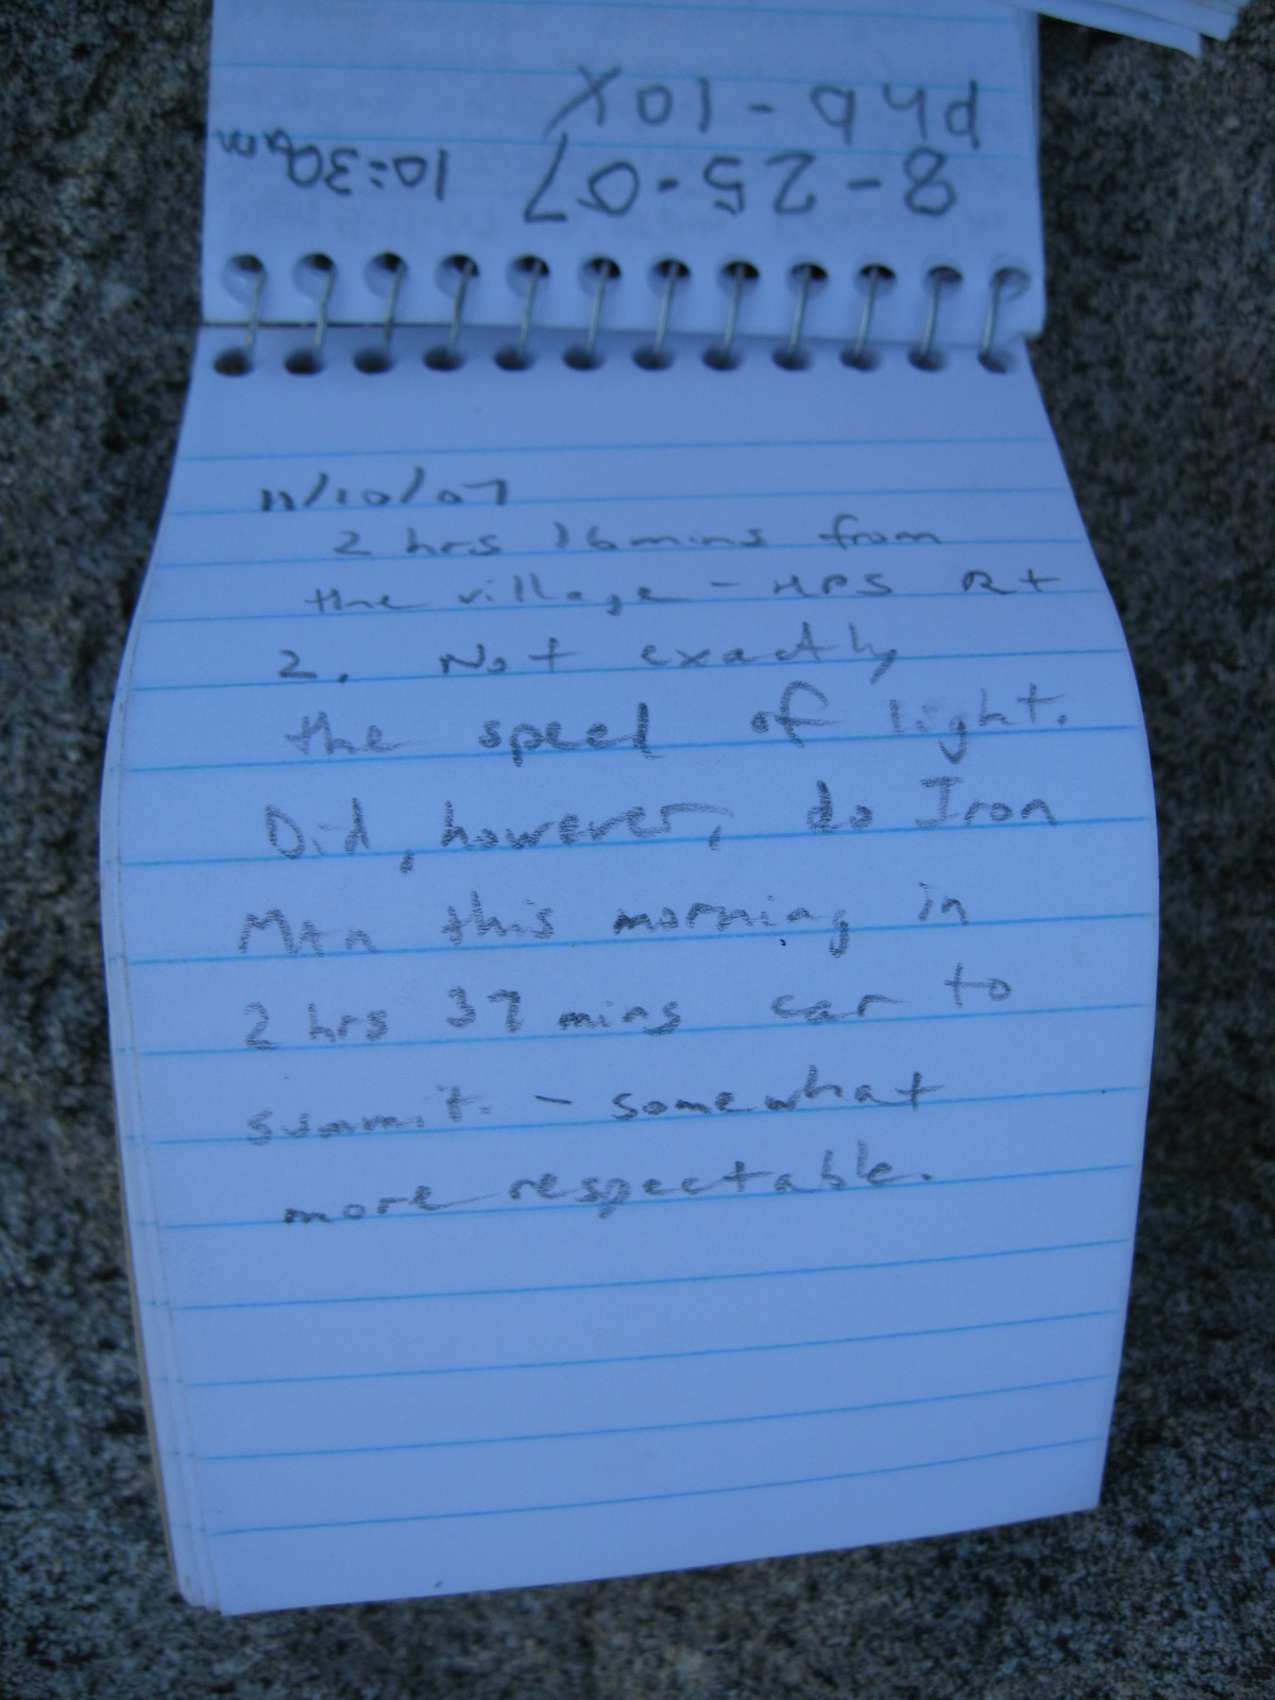 8-25-07 10:30am
phb - 10X
11/10/07
2 hrs 16 mins from
the village - HPS Rt
2. Not exactly
the speed of light.
Did, however, do Iron
Mtn this morning in
2 hrs 37 mins car to
summit. - somewhat
more respectable.